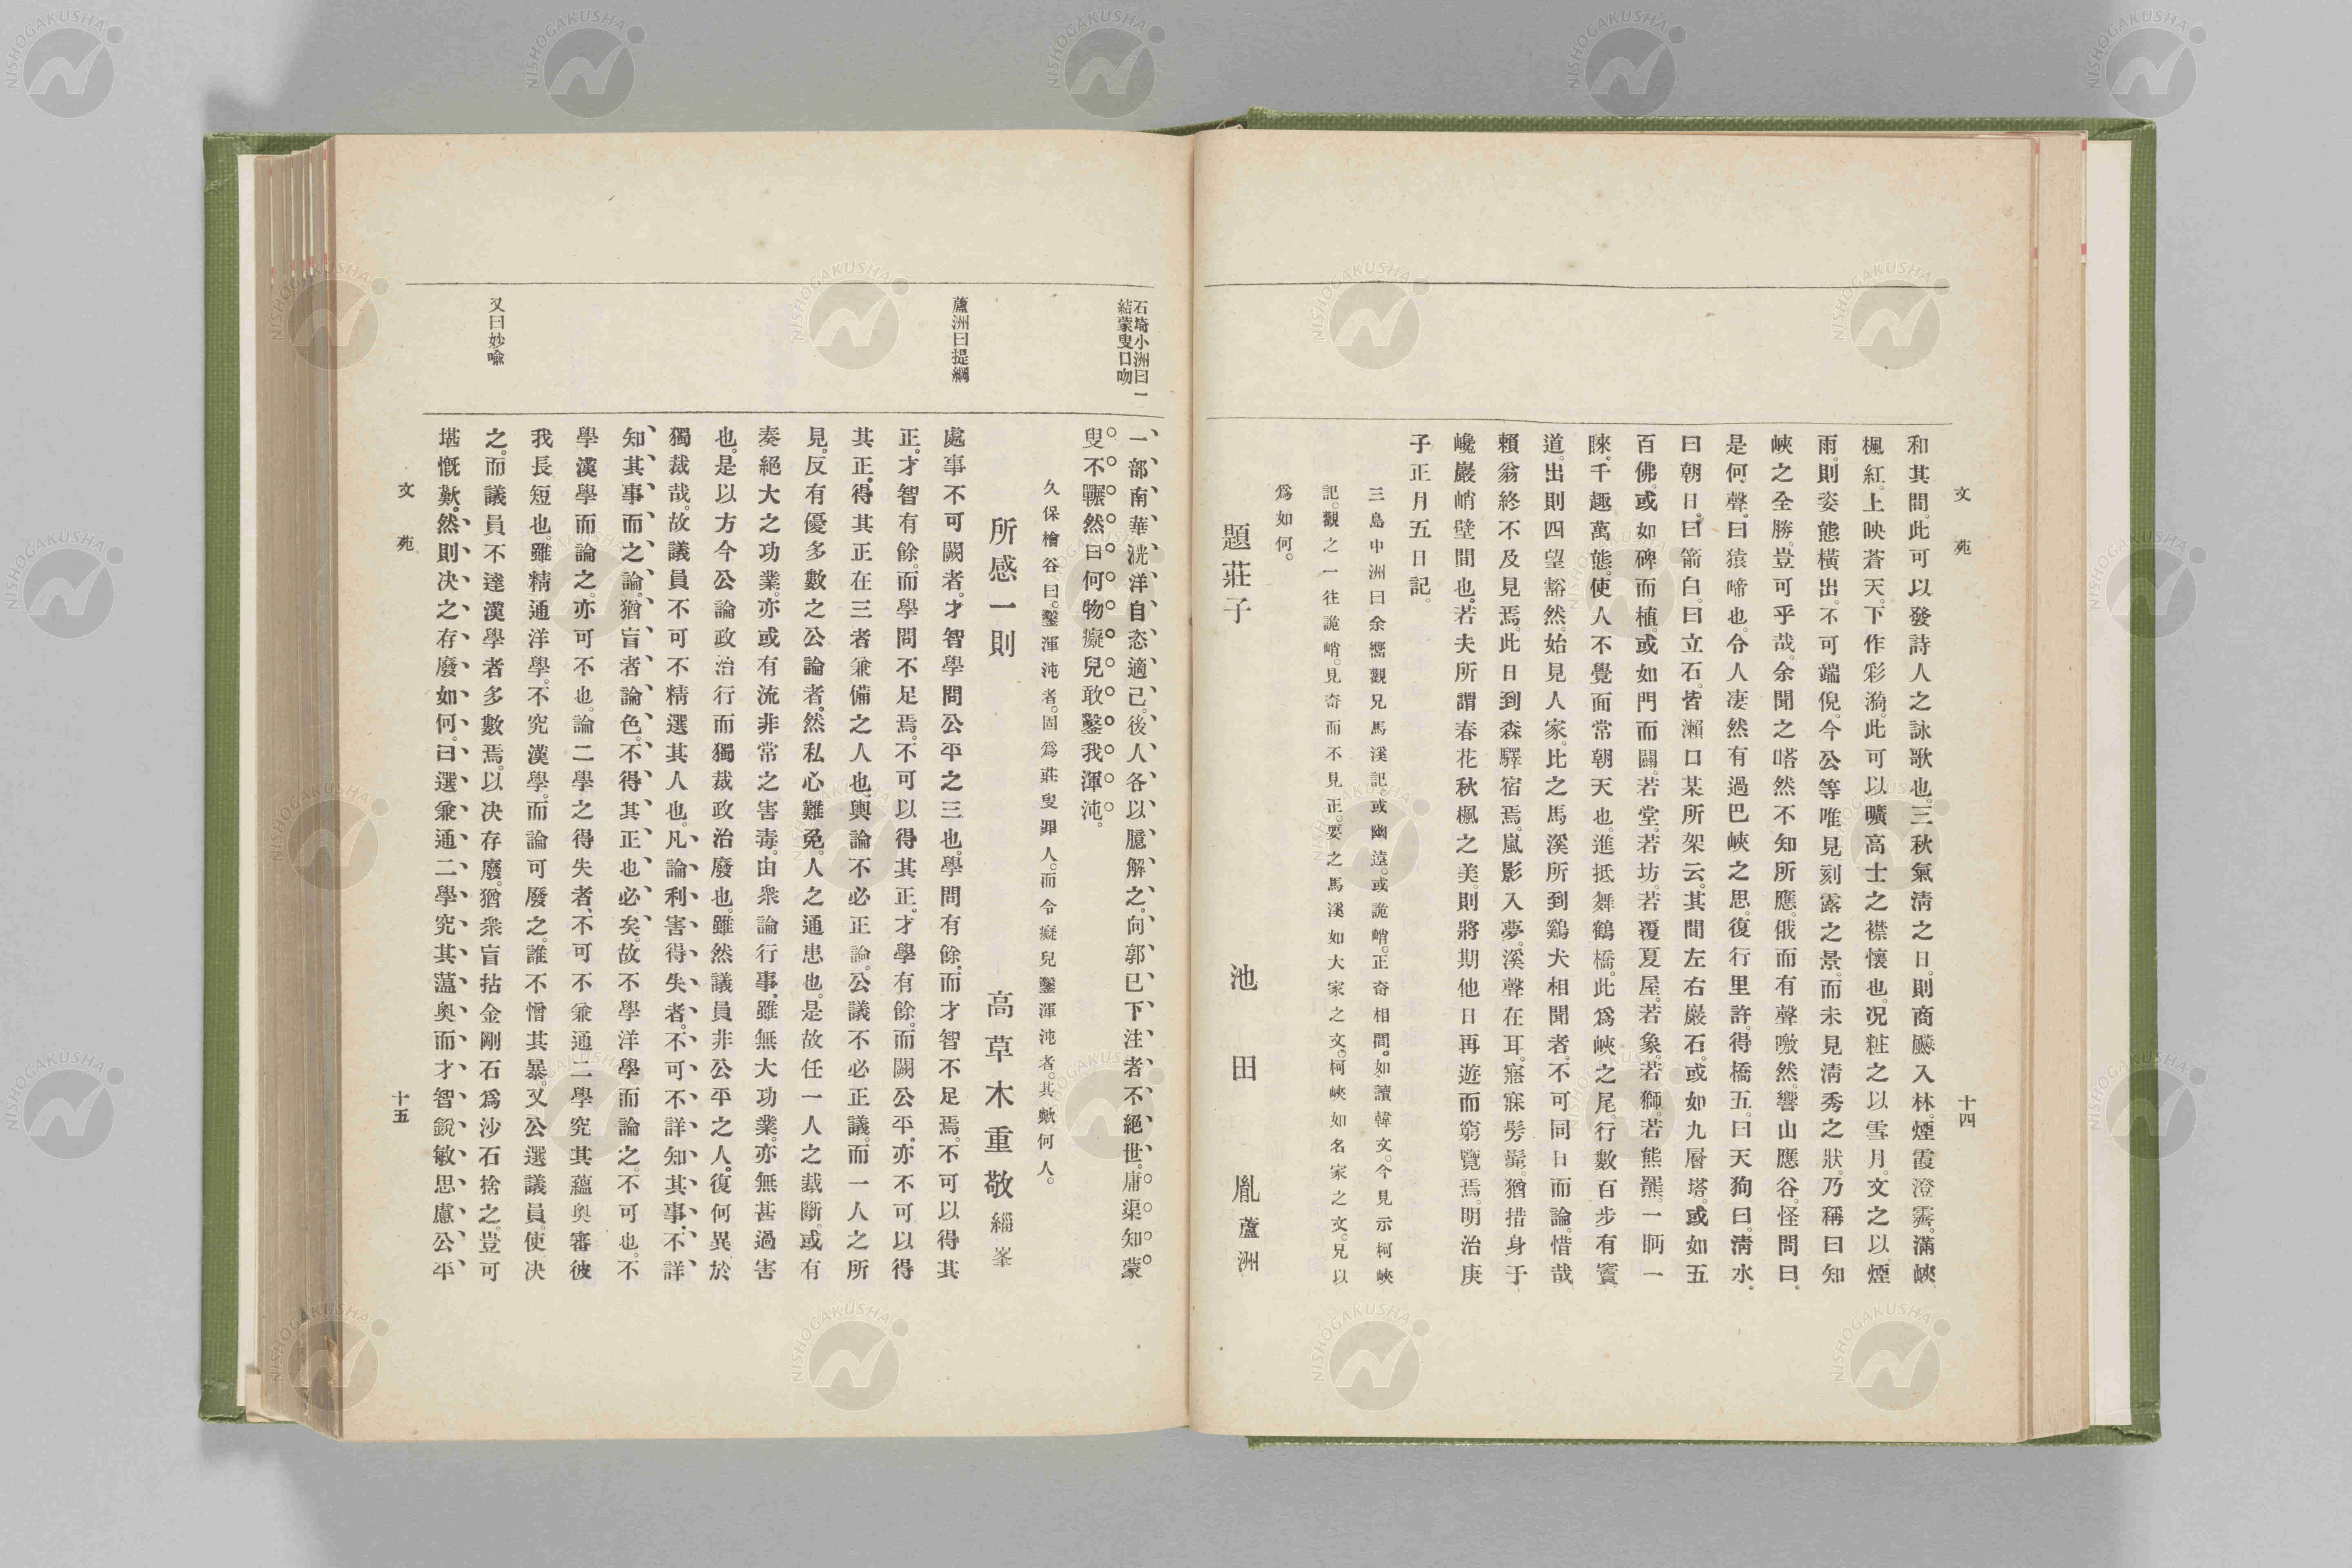 文苑
十四
和其間。此可以發詩人之詠歌也。三秋氣淸之日。則商飈入林。煙霞澄霽。滿峽
楓紅。上映蒼天。下作彩漪。此可以曠高士之襟懷也。況粧之以雪月。文之以煙
雨。則姿態橫出。不可端倪。今公等唯見刻露之景。而未見淸秀之狀。乃稱曰知
峽之全勝。豈可乎哉。余聞之嗒然不知所應。俄而有聲噭然。響山應谷。怪問曰。
是何聲。曰猿啼也。令人凄然有過巴峽之思。復行里許。得橋五。曰天狗曰。淸水。
曰朝日。曰箭白。曰立石。皆瀨口某所架云。其間左右巖石。或如九層塔。或如五
百佛。或如碑而植。或如門而闢。若堂。若坊。若覆夏屋。若象。若獅。若熊羆。一眄一
睞。千趣萬態。使人不覺面常朝天也。進抵舞鶴橋。此爲峽之尾。行數百步有竇
道。出則四望豁然。始見人家。比之馬溪所到鷄犬相聞者。不可同日而論。惜哉
賴翁終不及見焉。此日到森驛宿焉。嵐影入夢。溪聲在耳。寤寐髣髴。猶措身于
巉巖峭壁間也。若夫所謂春花秋楓之美。則將期他日再遊而窮覽焉。明治庚
子正月五日記。
三島中洲曰余嚮觀兄馬溪記。或幽遠。或詭峭。正奇相間。如讀韓文。今見示柯峽
記。觀之一往詭峭。見奇而不見正。要之馬溪如大家之文。柯峽如名家之文。兄以
爲如何。
題莊子 池田胤蘆洲
石埼小洲曰一
結蒙叟口吻
一部南華洸洋自恣適己。後人各以臆解之。向郭已下注者不絕世。庸渠知蒙
叟不囅然曰何物癡兒敢鑿我渾沌。
久保檜谷曰。鑿渾沌者。固爲莊叟罪人。而令癡兒鑿渾沌者。其歟何人。
所感一則 高草木重敬緇峯
蘆洲曰提綱
處事不可闕者。才智學問公平之三也。學問有餘。而才智不足焉。不可以得其
正。才智有餘。而學問不足焉。不可以得其正。才學有餘。而闕公平。亦不可以得
其正。得其正在三者兼備之人也。輿論不必正論。公議不必正議。而一人之所
見。反有優多數之公論者。然私心難免。人之通患也。是故任一人之裁斷。或有
奏絕大之功業。亦或有流非常之害毒。由衆論行事。雖無大功業。亦無甚過害
也。是以方今公論政治行而獨裁政治廢也。雖然議員非公平之人。復何異於
獨裁哉。故議員不可不精選其人也。凡論利害得失者。不可不詳知其事。不詳
知其事而之論。猶盲者論色。不得其正也必矣。故不學洋學而論之。不可也。不
學漢學而論之。亦可不也。論二學之得失者、不可不兼通二學究其蘊奧審彼
我長短也。雖精通洋學。不究漢學。而論可廢之。誰不憎其暴。又公選議員。使決
又曰妙喩
之。而議員不達漢學者多數焉。以決存廢。猶衆盲拈金剛石爲沙石捨之。豈可
堪慨歎。然則決之存廢如何。曰選兼通二學究其薀奧而才智銳敏思慮公平
文苑
十五